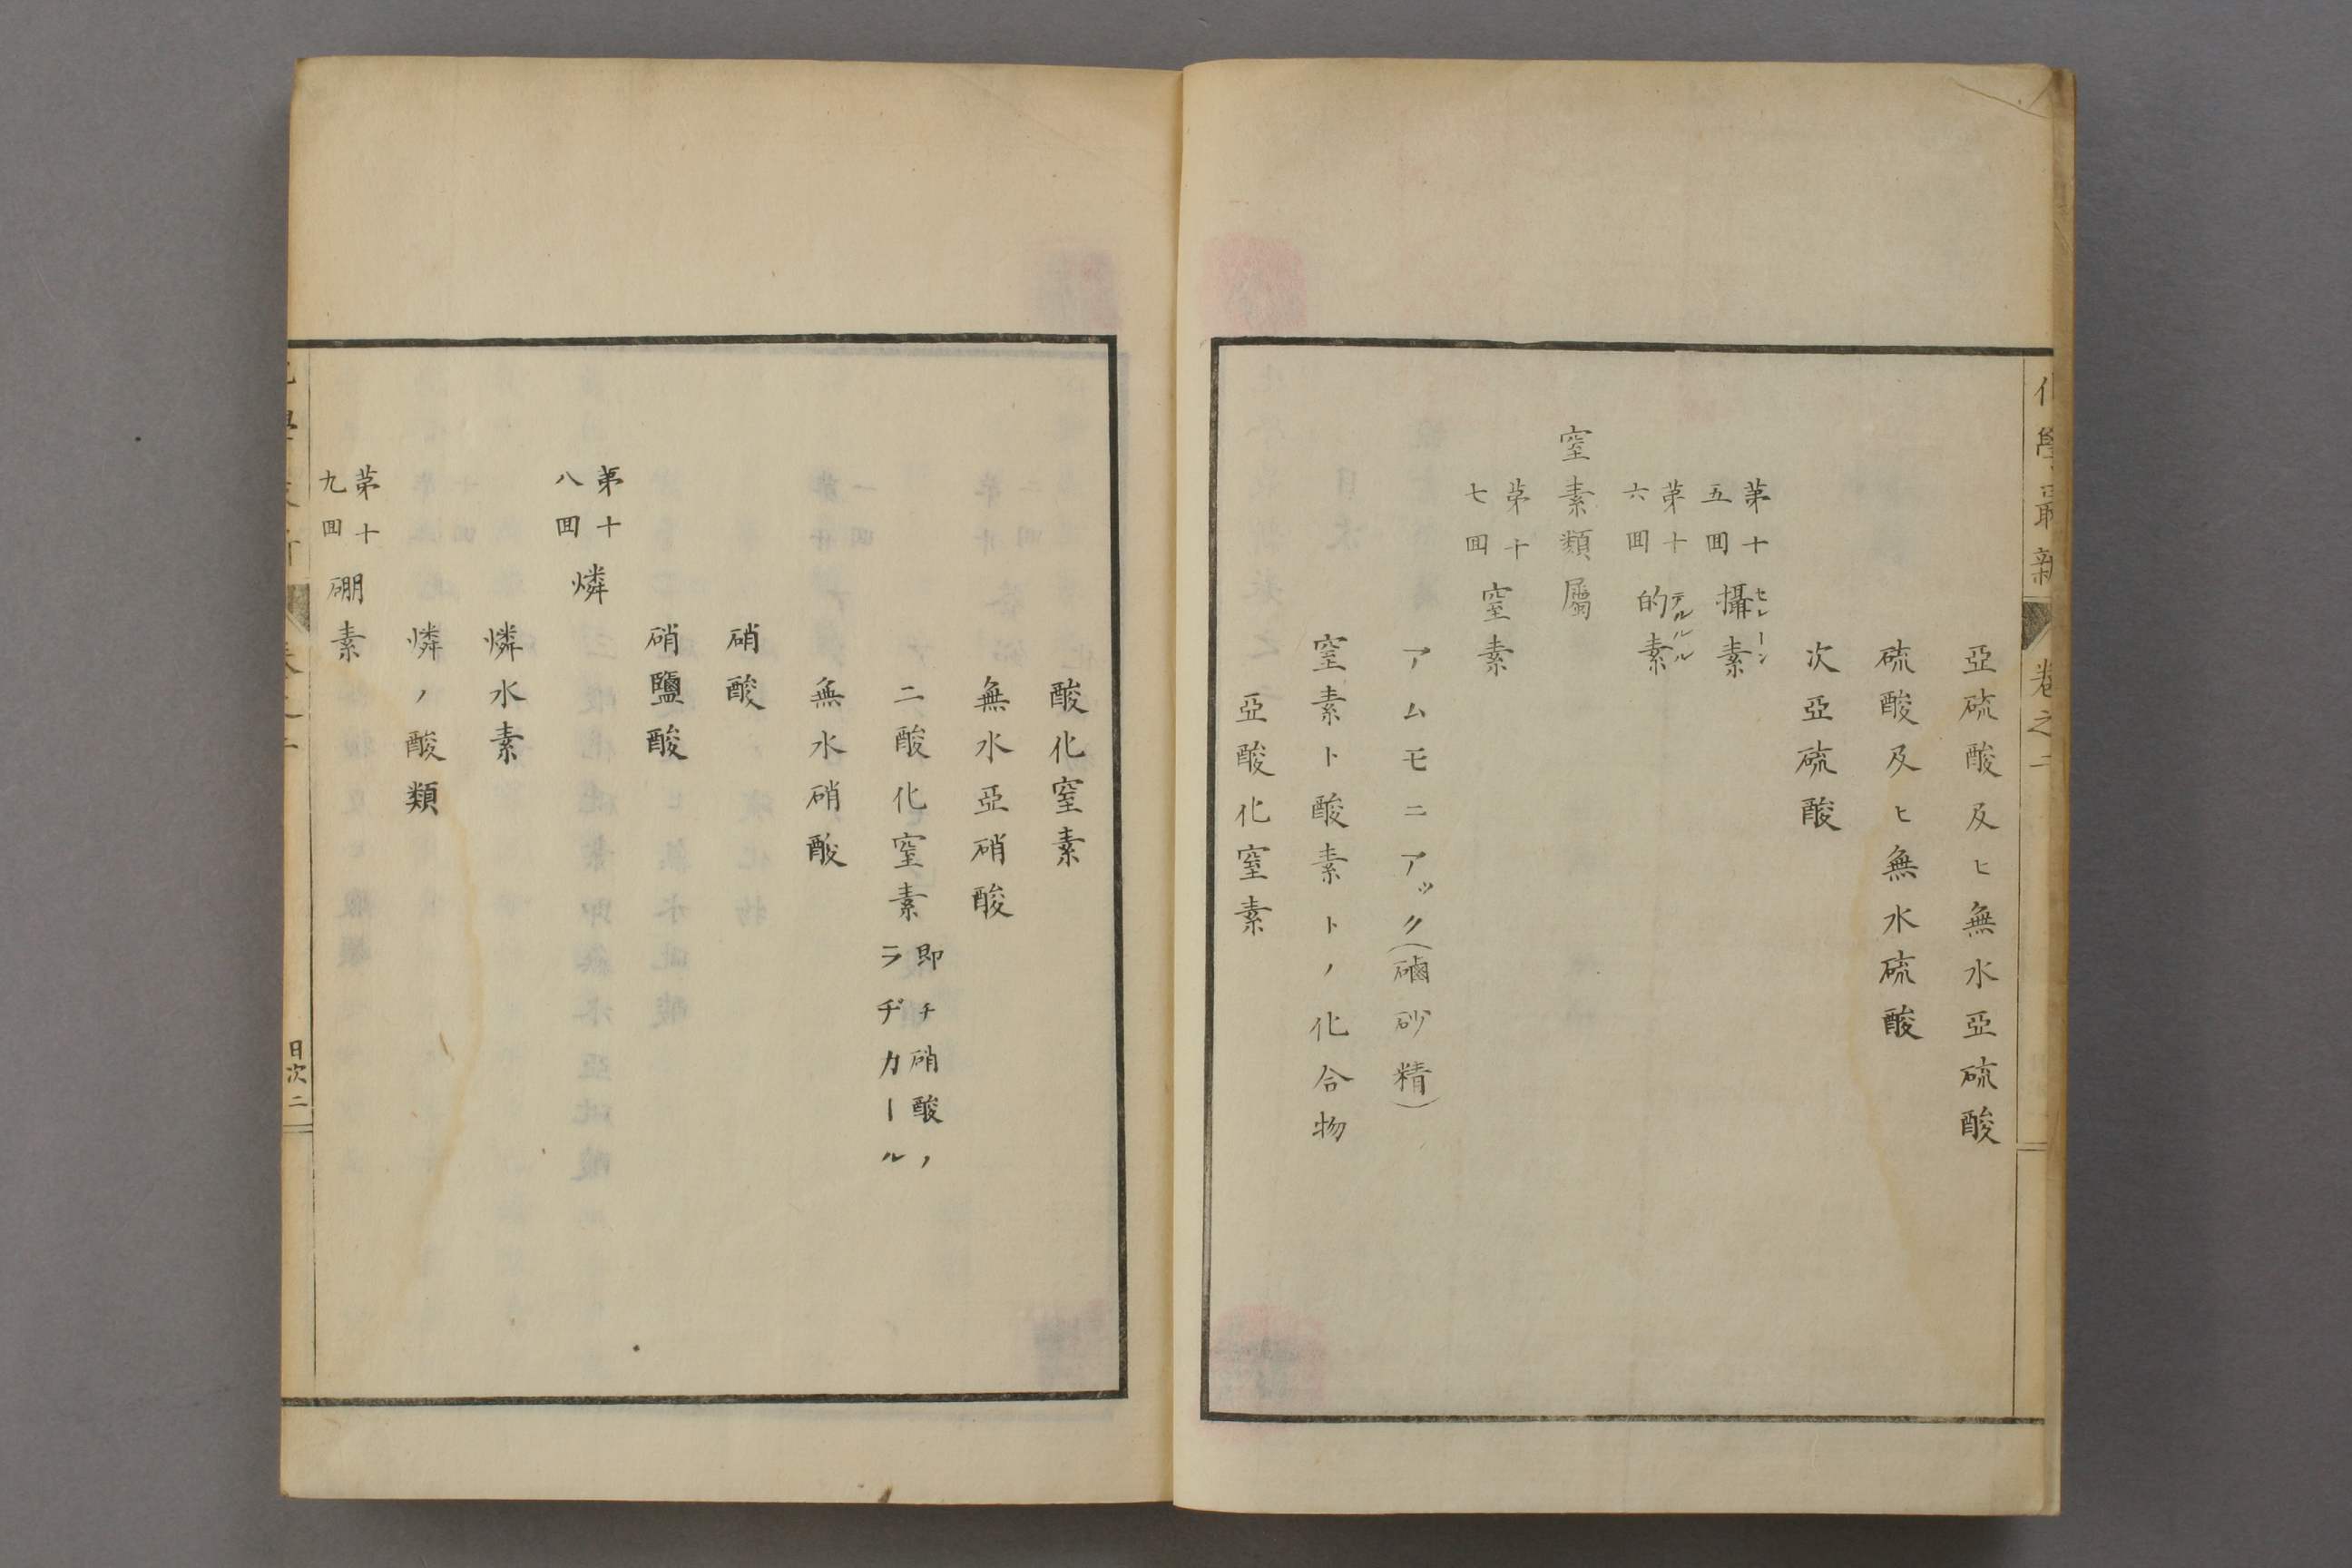 化學最新
卷之二
亞硫酸及ヒ無水亞硫酸
硫酸及ヒ無水硫酸
次亞硫酸
第十五囬 攝素 セレーン
第十六囬 的素 テルルル
窒素類屬
第十七囬 窒素
アムモニアック(磠砂精)
窒素ト酸素トノ化合物
亞酸化窒素
酸化窒素
無水亞硝酸
二酸化窒素 即チ硝酸ノラヂカール
無水硝酸
硝酸
硝鹽酸
第十八囬 燐
燐水素
燐ノ酸類
第十九囬 硼素
目次 二